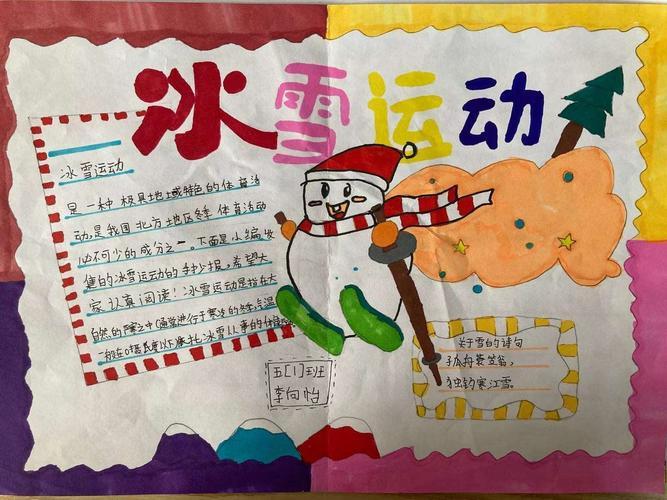 冰雪运动
冰雪运动
是一种极具地域特色的体育活
动,是我国北方地区冬体育活动
必不可少的成分之一。下面是小编收
集的冰雪运动的手抄报,希望大
家认真阅读!冰雪运动是指在大
自然的寒之中(通常进行于寒冷的冬季,气温
一般在0摄氏度以下
五[1]班
李向怡
关于雪的诗句
孤舟蓑笠翁,
独钓寒江雪。